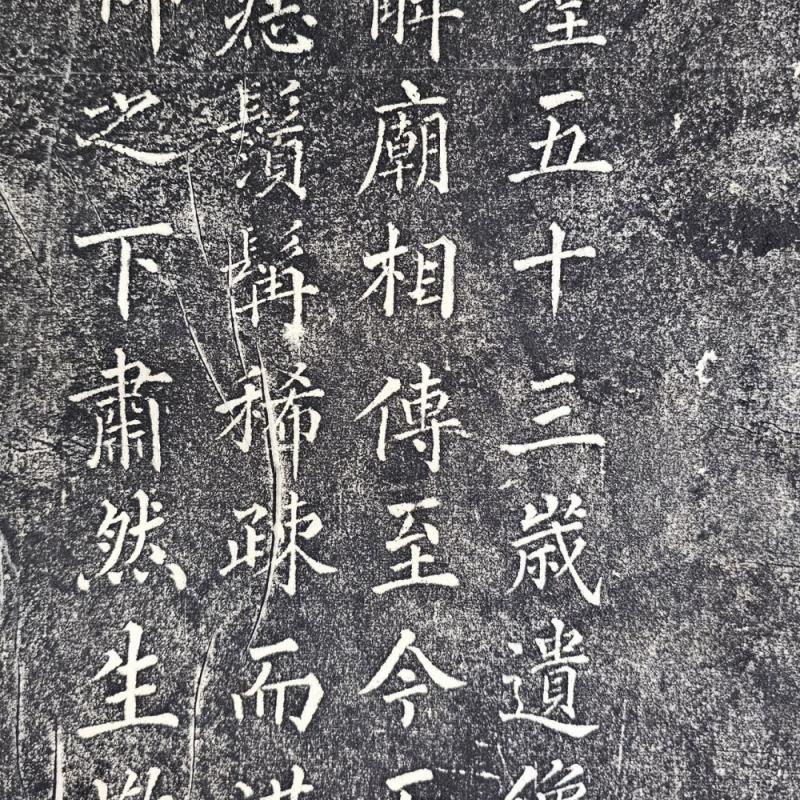 五十三歲遺像
解廟相傳至今
痣鬚髯稀疎而
之下肅然生